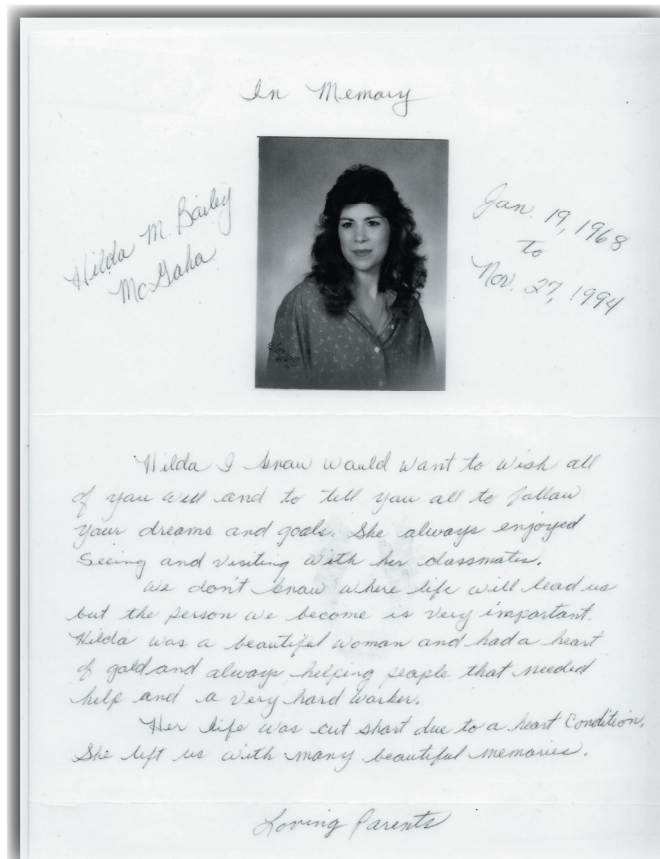 In Memory
Hilda M. Bailey
McGaha
Jan. 19, 1968
to
Nov. 27, 1994
Hilda I know would want to wish all
of you well and to tell you all to follow
your dreams and goals. She always enjoyed
seeing and visiting with her classmates.
We don't know where life will lead us
but the person we become is very important.
Hilda was a beautiful woman and had a heart
of gold and always helping people that needed
help and a very hard worker.
Her life was cut short due to a heart condition.
She left us with many beautiful memories.
Loving Parents